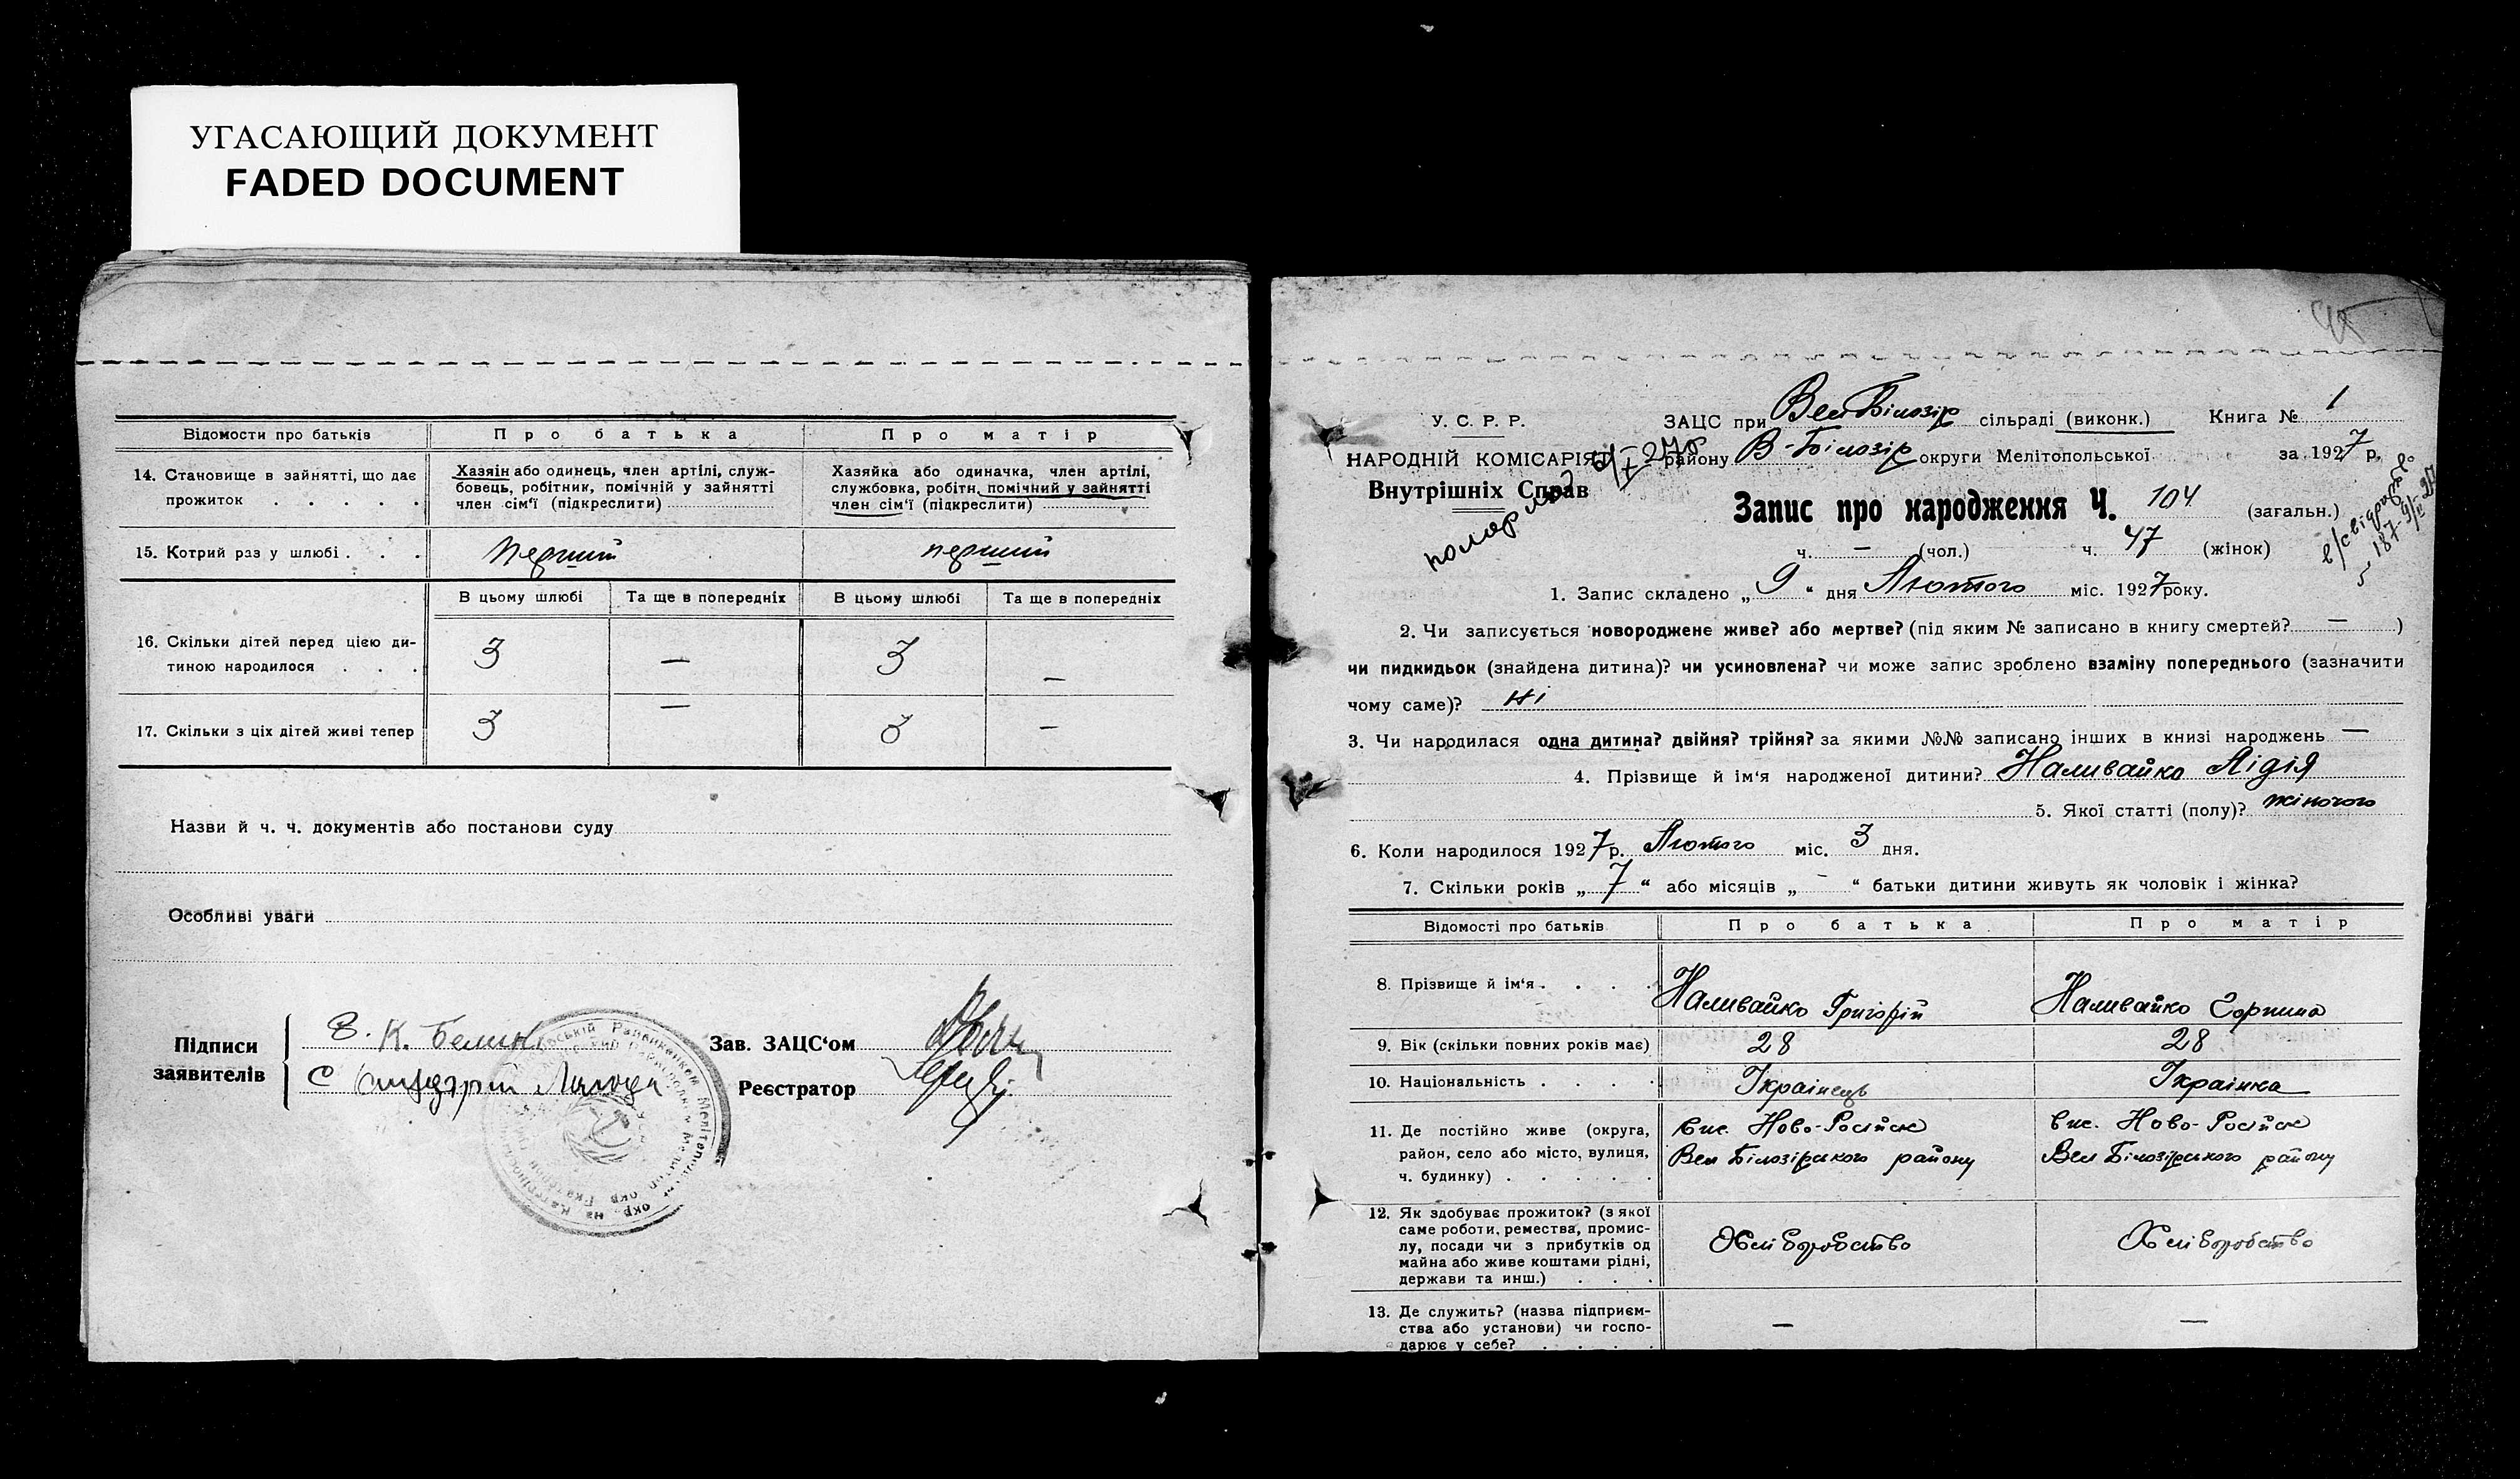 УГАСАЮЩИЙ ДОКУМЕНТ
FADED DOCUMENT
Відомости про батьків Про батька Про матір
14. Становище в зайнятті, що дає
прожиток . . . . .
Хазяін або одинець, член артілі, служ-
бовець, робітник, помічній у зайнятті
член сім'ї (підкреслити)
Хазяйка або одиначка, член артілі,
службовка, робітн. помічний у зайнятті
член сім'ї (підкреслити)
15. Котрий раз у шлюбі . . . перший перший
В цьому шлюбі Та ще в попередніх В цьому шлюбі Та ще в попередніх
16. Скільки дітей перед цією ди-
тиною народилося . . . 3 — 3 —
17. Скільки з ціх дітей живі тепер 3 — 3 —
Назви й ч. ч. документів або постанови суду
Особливі уваги
Підписи
заявителів
Зав. ЗАЦС'ом
Реєстратор
У. С. Р. Р.
НАРОДНІЙ КОМІСАРІЯТ
Внутрішніх Справ
ЗАЦС при Вел Білозір сільраді (виконк.) Книга № 1
району В-Білозір округи Мелітопольської за 1927 р.
Запис про народження Ч. 104 (загальн.)
ч. — (чол.) ч. 47 (жінок)
1. Запис складено „9“ дня Лютого міс. 1927 року.
2. Чи записується новороджене живе? або мертве? (під яким № записано в книгу смертей? — )
чи пидкидьок (знайдена дитина)? чи усиновлена? чи може запис зроблено взаміну попереднього (зазначити
чому саме)? ні
3. Чи народилася одна дитина? двійня? трійня? за якими №№ записано інших в книзі народжень —
4. Прізвище й ім'я народженої дитини? Наливайко Лідія
5. Якої статті (полу)? жіночого
6. Коли народилося 1927 р. Лютого міс. 3 дня.
7. Скільки років „7“ або місяців „-“ батьки дитини живуть як чоловік і жінка?
Відомості про батьків Про батька Про матір
8. Прізвище й ім'я . . . . Наливайко Григорій Наливайко Горпина
9. Вік (скільки повних років має) 28 28
10. Національність . . . . Українець Українка
11. Де постійно живе (округа,
район, село або місто, вулиця,
ч. будинку) . . . . .
вис. Ново-Російск
Вел Білозірського району
вис. Ново-Російск
Вел Білозірського району
12. Як здобуває прожиток? (з якої
саме роботи, ремества, промис-
лу, посади чи з прибутків од
майна або живе коштами рідні,
держави та инш.) . . .
Хліборобство Хліборобство
13. Де служить? (назва підприєм-
ства або установи) чи госпо-
дарює у себе? . . . .
— —